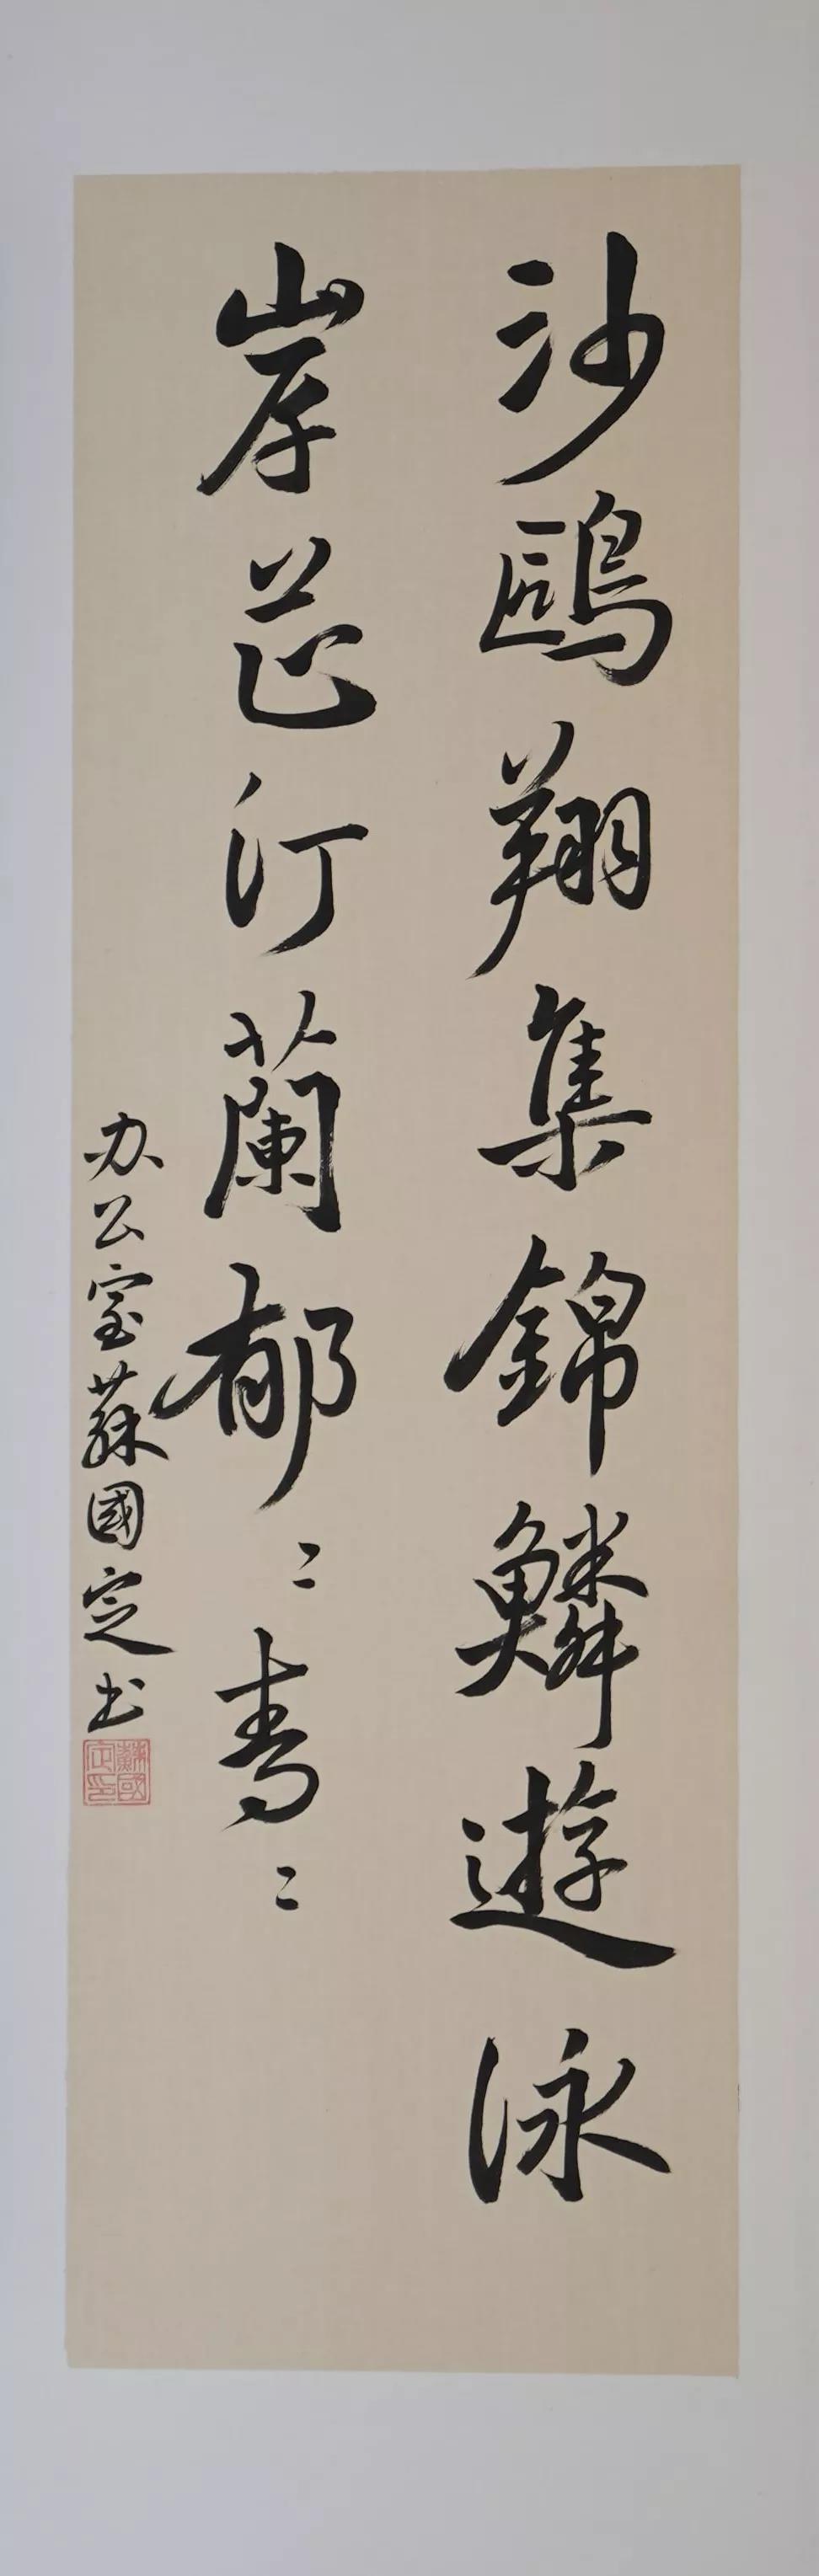 沙鷗翔集錦鱗遊泳
岸芷汀蘭郁〻青〻
办公室蘇國定书
蘇國定印